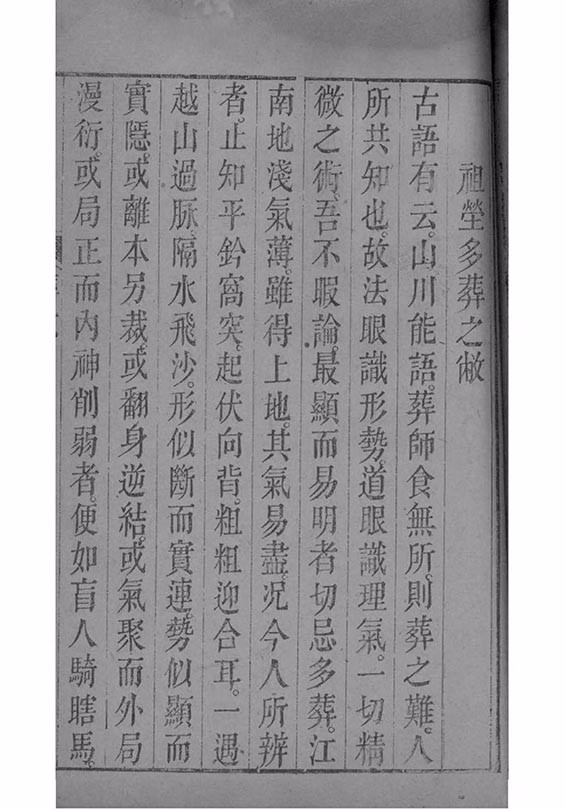 祖塋多葬之敝
古語有云。山川能語。葬師食無所。則葬之難。人
所共知也。故法眼識形勢。道眼識理氣。一切精
微之術。吾不暇論。最顯而易明者。切忌多葬。江
南地淺氣薄。雖得上地。其氣易盡。况今人所辨
者。止知平鈐窩突。起伏向背。粗粗迎合耳。一遇
越山過脉。隔水飛沙。形似斷而實連。勢似顯而
實隱。或離本另裁。或翻身逆結。或氣聚而外局
漫衍。或局正而內神削弱者。便如盲人騎瞎馬。